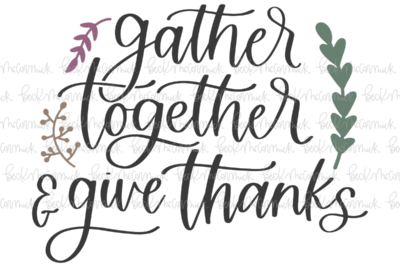 gather
together
& give thanks